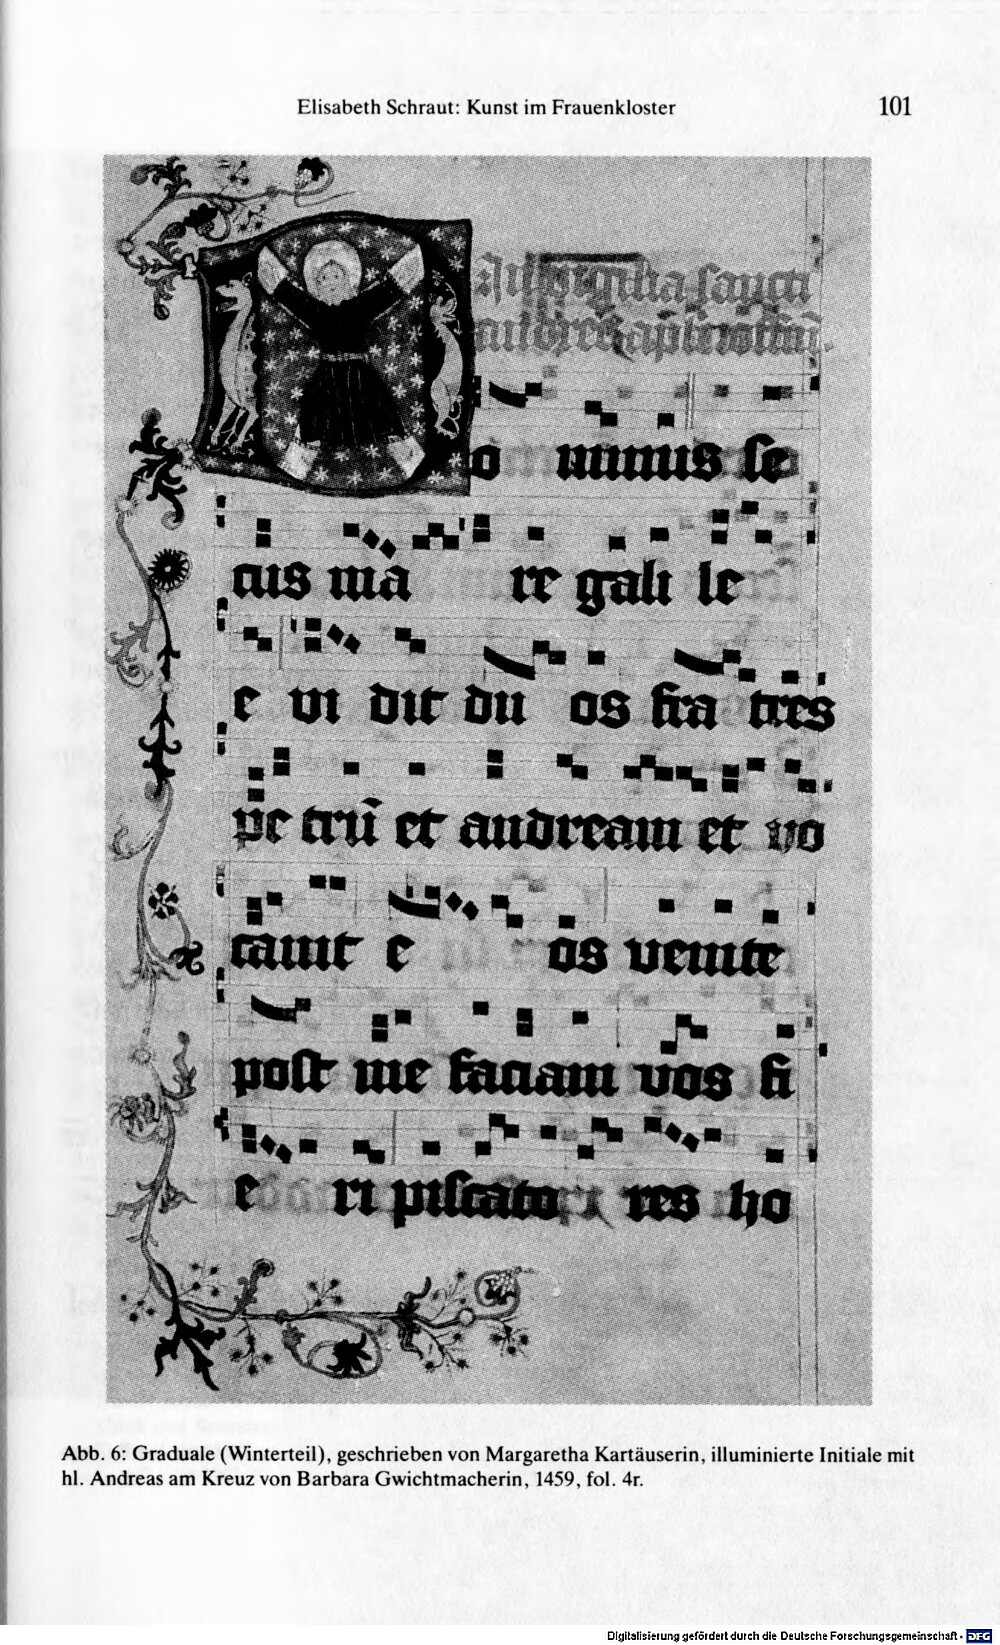 Elisabeth Schraut: Kunst im Frauenkloster 101
In vigilia sancti
andree apl'i officiū.
Do minus se
cus ma re gali le
e vi dit du os fra tres
pe trū et andream et vo
cauit e os venite
post me faciam vos fi
e ri piscato res ho
Abb. 6: Graduale (Winterteil), geschrieben von Margaretha Kartäuserin, illuminierte Initiale mit
hl. Andreas am Kreuz von Barbara Gwichtmacherin, 1459, fol. 4r.
Digitalisierung gefördert durch die Deutsche Forschungsgemeinschaft - DFG